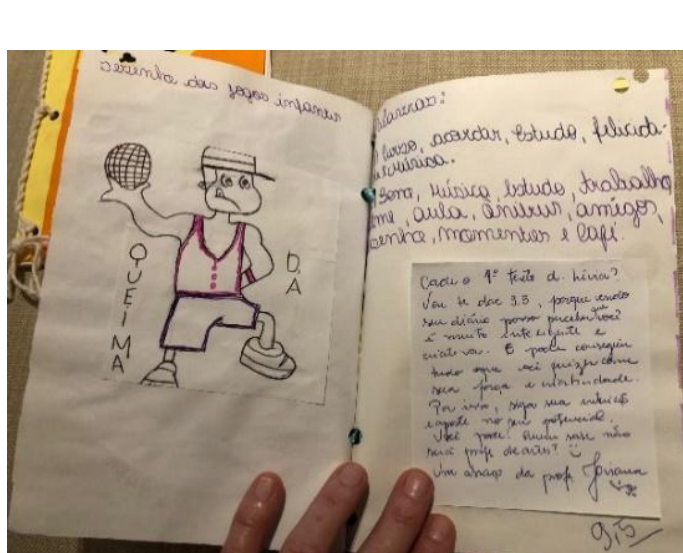 dos jogos infantis
QUEIMA
DA
Palavras:
curso, acordar, Estudo, felicida-
música.
Sono, Música, Estudo, trabalho
me, aula, amigos,
momentos e Café.
Cadê o 1º texto d. Lívia?
Vou te dar 9.5, porque vendo
seu diário posso perceber que você
é muito inteligente e
criativa. E pode conseguir
tudo que você quizer com
sua força e criatividade.
Por isso, siga sua intuição
e aposte no seu potencial.
Você pode. Quem sabe não
será profe de artes? :)
Um abraço da profe Joviana
9,5